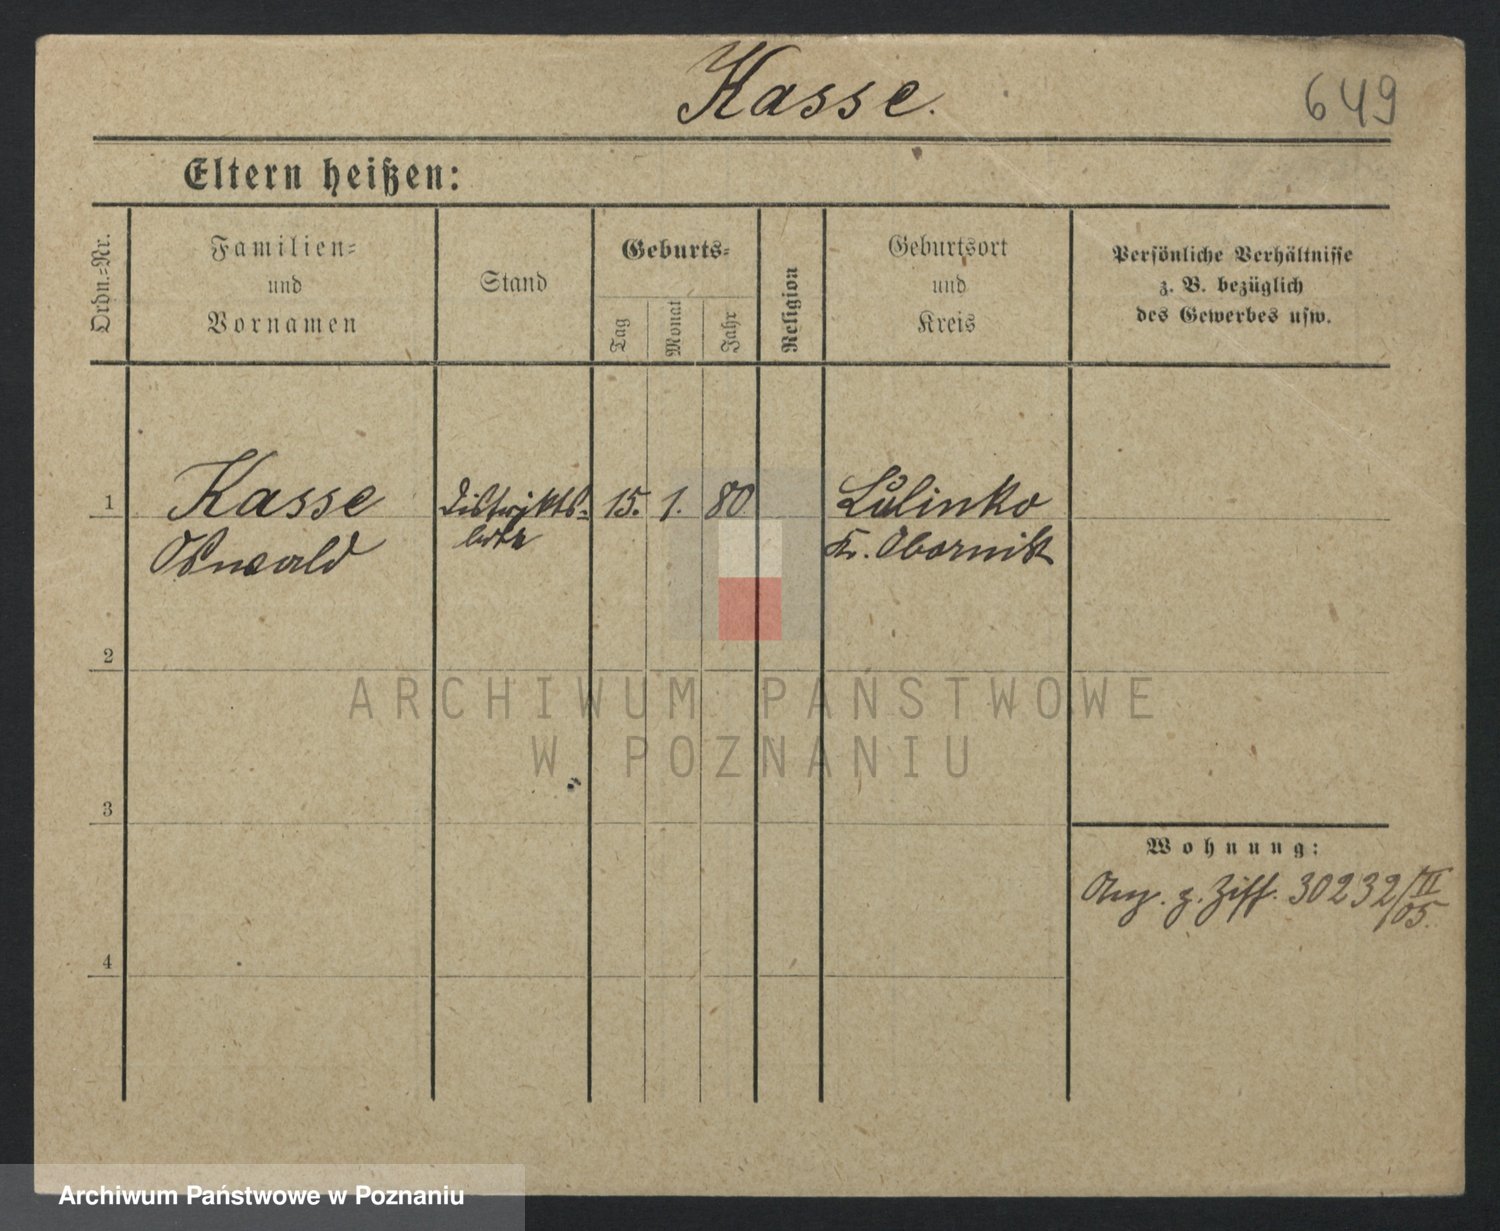 Kasse.
649
Eltern heißen:
Ordn.-Nr.
Familien-
und
Vornamen
Stand
Geburts-
Tag
Monat
Jahr
Religion
Geburtsort
und
Kreis
Persönliche Verhältnisse
z. B. bezüglich
des Gewerbes usw.
1
Kasse
Oswald
Distrikts-
bote
15.
1.
80
Lulinko
Kr. Obornik
2
ARCHIWUM PAŃSTWOWE
W POZNANIU
3
Wohnung:
Ang. z. Ziff. 30232/II
05.
4
Archiwum Państwowe w Poznaniu